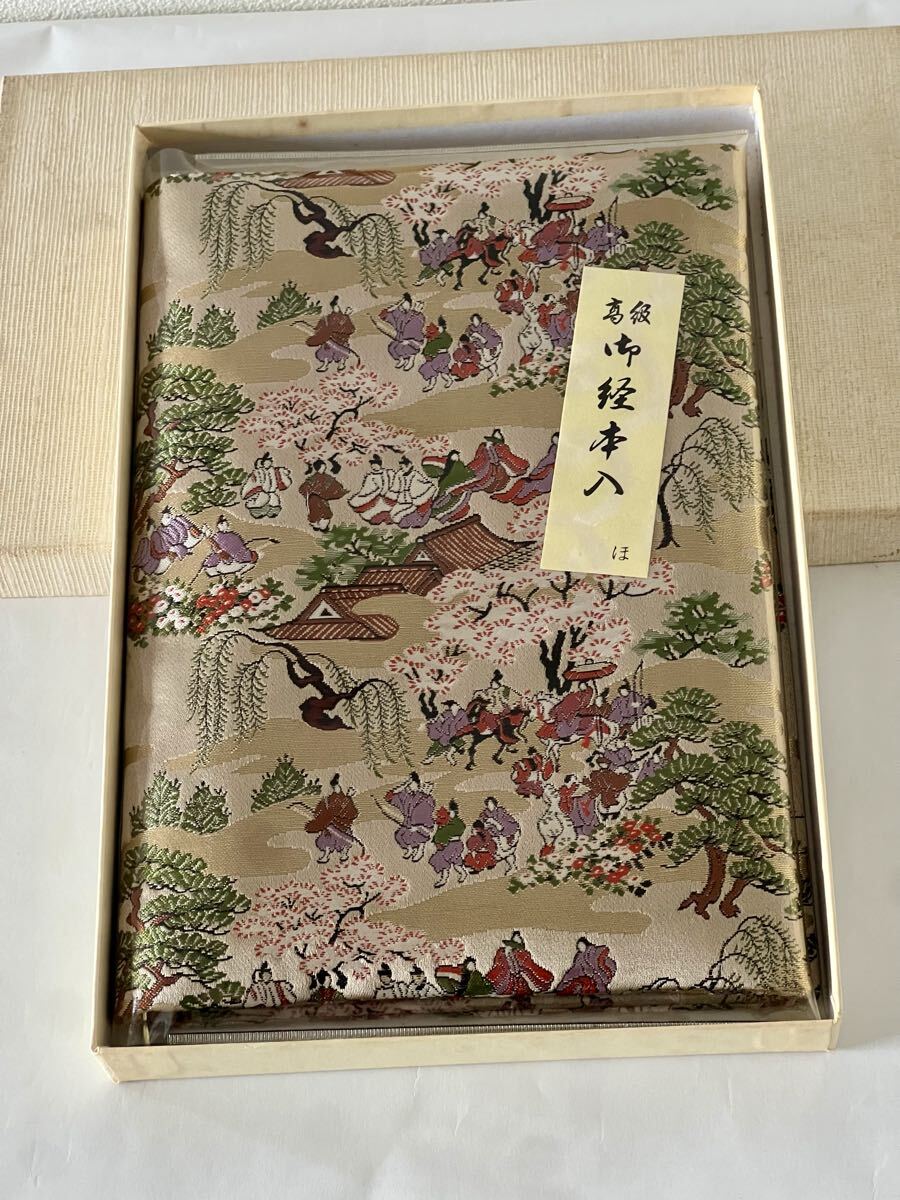 高級
御経本入
ほ